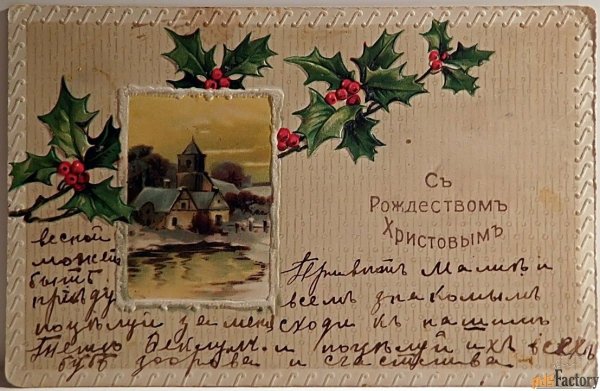 Съ
Рождествомъ
Христовымъ
весной
можетъ
быть
приѣду
Приветъ Малик и
всемъ знакомымъ
поцѣлуй за меня сходи къ нашимъ
и поцѣлуй ихъ всехъ
будь здорова и счастлива
ArtFactory